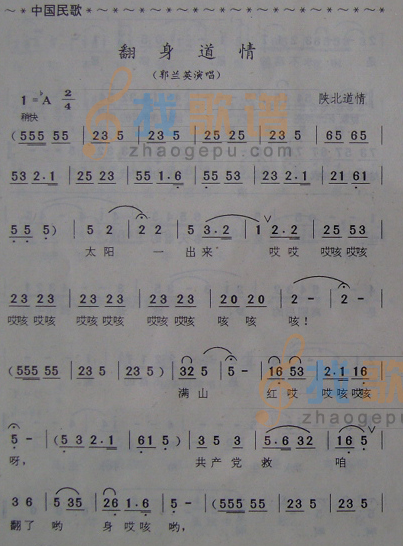 ～*～*～ 中国民歌 *～*～*～*～*～*～*～*～*～*～*～*～
翻身道情
（郭兰英演唱）
1=♭A 2/4 陕北道情
稍快
找歌谱
zhaogepu.com
(555 55 | 23 5 | 23 5 | 25 25 | 23 5 | 65 65 |
53 2·1 | 25 23 | 55 1·6 | 55 55 | 23 2·1 | 21 61 |
5 5 5) | 5 2 | 2 2 | 5 3·2 | 1 2·2 | 55 55 |
太阳 一 出来 哎哎 哎咳哎咳
23 23 | 23 23 | 23 23 | 20 20 | 2 - | 2 - |
哎咳哎咳 哎咳哎咳 哎咳哎咳 咳 咳 咳！
(555 55 | 23 5 | 23 5) | 32 5 | 5 - | 16 53 | 2·1 16 |
满山 红哎 哎咳哎咳
5 - | (5 3 2·1 | 61 5) | 3 5 3 | 5·6 32 | 16 5 |
呀， 共产党 救 咱
3 6 | 5 35 | 26 1·6 | 5 - | (555 55 | 23 5 | 23 5) |
翻了 哟 身哎咳 哟，